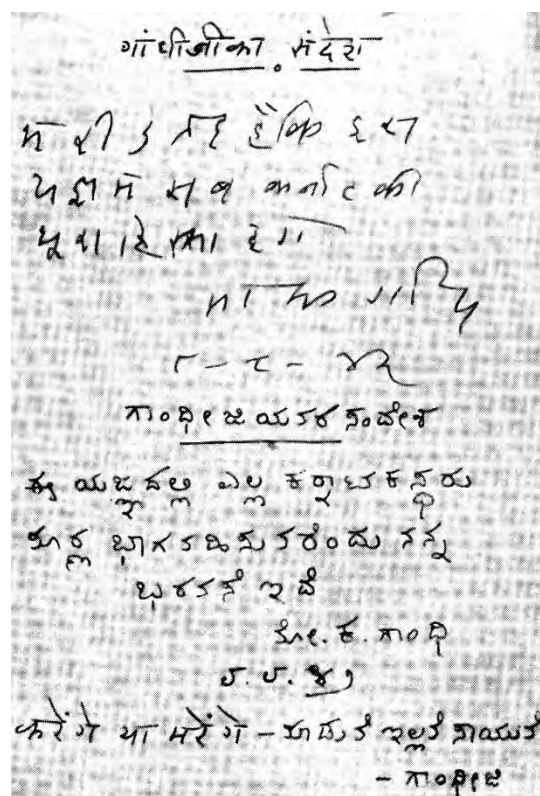 गांधीजीका संदेश
है कि इस
यज्ञ में सब कर्नाटकी
पूरा हिस्सा
गांधी
८-८-४२
ಗಾಂಧೀಜಿಯವರ ಸಂದೇಶ
ಈ ಯಜ್ಞದಲ್ಲಿ ಎಲ್ಲ ಕರ್ನಾಟಕಸ್ಥರು
ಪೂರ್ಣ ಭಾಗವಹಿಸುವರೆಂದು ನನ್ನ
ಭರವಸೆ ಇದೆ
ಮೋ. ಕ. ಗಾಂಧಿ
೮.೮.೪೨
करेंगे या मरेंगे - ಮಾಡುವೆ ಇಲ್ಲವೆ ಸಾಯುವೆ
- ಗಾಂಧೀಜಿ